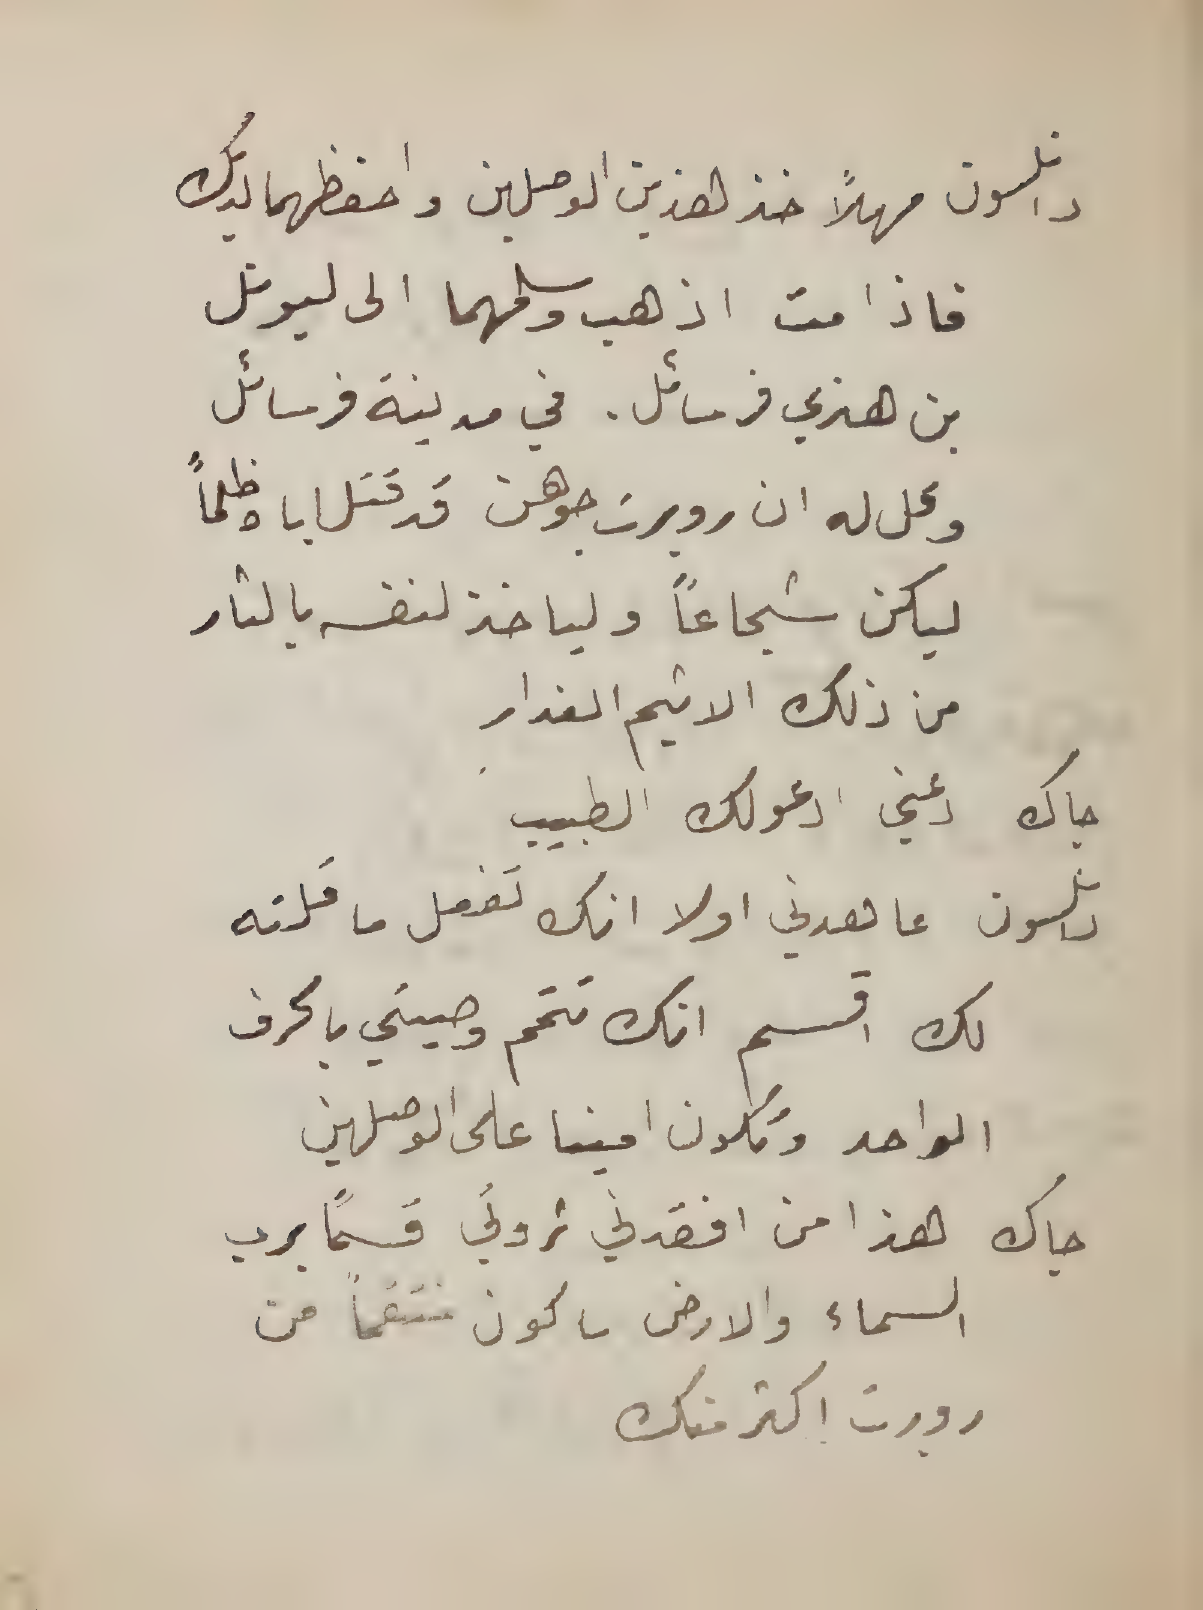 دانلسون مهلاً خذ هذين الوصلين واحفظهما لديك
فاذا مت اذهب وسلمهما الى ليونل
بن هنري فرسائل. في مدينة فرسائل
وقل له ان روبرت جوهن قد قتل اباه ظلماً
ليكن شجاعاً ولياخذ لنفسه بالثار
من ذلك الاثيم الغدار
جاك دعني ادعو لك الطبيب
دانلسون عاهدني اولا انك تفعل ما قلته
لك اقسم انك تتمم وصيتي بالحرف
الواحد وتكون امينا على الوصلين
جاك هذا من افقدني ثروتي قسمًا برب
السماء والارض ساكون منتقماً من
روبرت اكثر منك